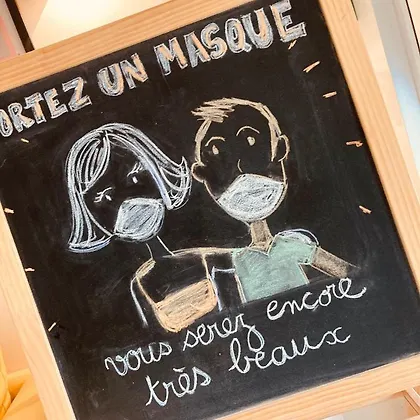 PORTEZ UN MASQUE
vous serez encore
très beaux